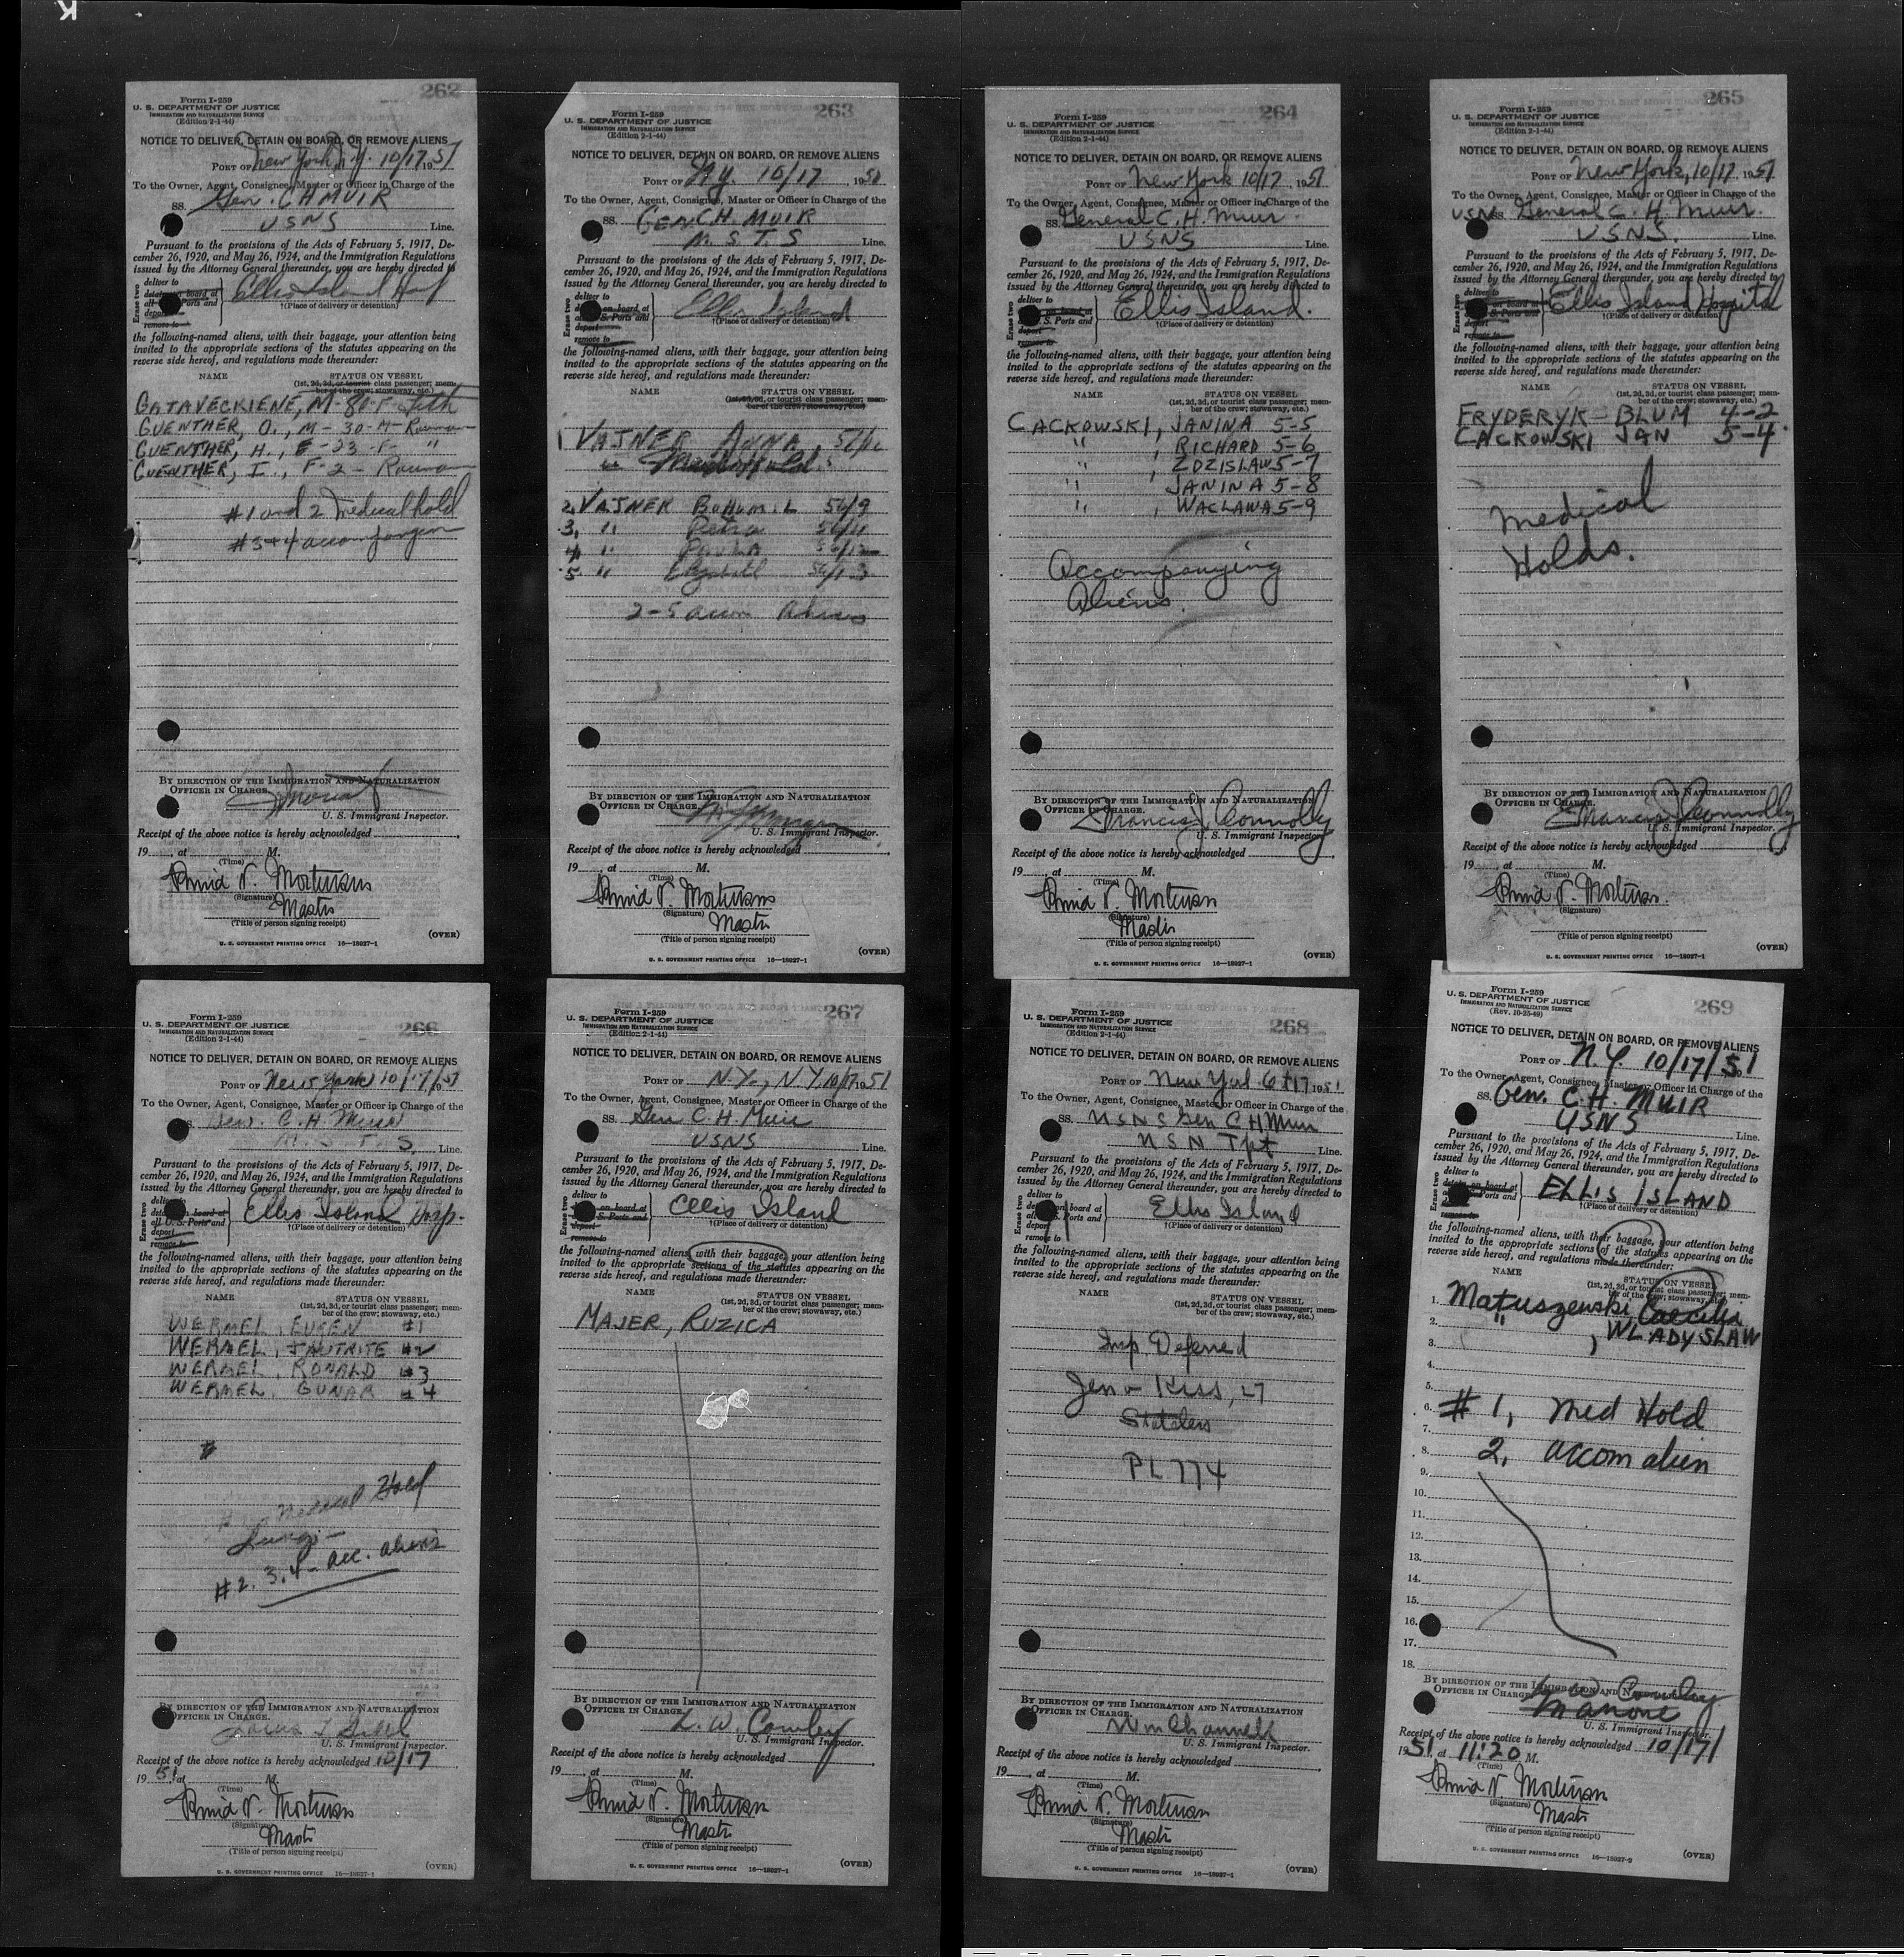 K
262
Form I-259
U. S. DEPARTMENT OF JUSTICE
IMMIGRATION AND NATURALIZATION SERVICE
(Edition 2-1-44)
NOTICE TO DELIVER, DETAIN ON BOARD, OR REMOVE ALIENS
PORT OF New York N.Y. 10/17 1951
To the Owner, Agent, Consignee, Master or Officer in Charge of the
SS. Gen. C H MUIR
USNS Line.
Pursuant to the provisions of the Acts of February 5, 1917, De-
cember 26, 1920, and May 26, 1924, and the Immigration Regulations
issued by the Attorney General thereunder, you are hereby directed to
Erase two
deliver to
Ellis Island
†(Place of delivery or detention)
the following-named aliens, with their baggage, your attention being
invited to the appropriate sections of the statutes appearing on the
reverse side hereof, and regulations made thereunder:
NAME STATUS ON VESSEL
(1st, 2d, 3d, or tourist class passenger; mem-
ber of the crew; stowaway, etc.)
GATAVECKIENE, M-80-F Lith
GUENTHER, O., M-30-M-
GUENTHER, H., E-23-F- "
GUENTHER, I., F-2-
#1 and 2 Medical hold
#3+4
BY DIRECTION OF THE IMMIGRATION AND NATURALIZATION
OFFICER IN CHARGE.
U. S. Immigrant Inspector.
Receipt of the above notice is hereby acknowledged
19 , at M.
(Time)
(Signature)
Master
(Title of person signing receipt)
(OVER)
U. S. GOVERNMENT PRINTING OFFICE 16—18027-1
263
Form I-259
U. S. DEPARTMENT OF JUSTICE
IMMIGRATION AND NATURALIZATION SERVICE
(Edition 2-1-44)
NOTICE TO DELIVER, DETAIN ON BOARD, OR REMOVE ALIENS
PORT OF N.Y. 10/17, 195
To the Owner, Agent, Consignee, Master or Officer in Charge of the
SS. GEN C.H. MUIR
M. S T. S Line.
Pursuant to the provisions of the Acts of February 5, 1917, De-
cember 26, 1920, and May 26, 1924, and the Immigration Regulations
issued by the Attorney General thereunder, you are hereby directed to
Erase two
deliver to
on board at
S. Ports and
deport
remove to
Ellis Island
†(Place of delivery or detention)
the following-named aliens, with their baggage, your attention being
invited to the appropriate sections of the statutes appearing on the
reverse side hereof, and regulations made thereunder:
NAME STATUS ON VESSEL
(1st, 2d, 3d, or tourist class passenger; mem-
ber of the crew; stowaway, etc.)
1 VAJNER ANNA
2, VAJNER BOHUMIL 56/9
3, " Petra 56/11
4, "
5 " 56/13
2-5 accom Aliens
BY DIRECTION OF THE IMMIGRATION AND NATURALIZATION
OFFICER IN CHARGE.
U. S. Immigrant Inspector.
Receipt of the above notice is hereby acknowledged
19 , at M.
(Time)
(Signature)
Master
(Title of person signing receipt)
(OVER)
U. S. GOVERNMENT PRINTING OFFICE 16—18027-1
264
Form I-259
U. S. DEPARTMENT OF JUSTICE
IMMIGRATION AND NATURALIZATION SERVICE
(Edition 2-1-44)
NOTICE TO DELIVER, DETAIN ON BOARD, OR REMOVE ALIENS
PORT OF New York 10/17, 1951
To the Owner, Agent, Consignee, Master or Officer in Charge of the
SS. General C. H. Muir.
USNS Line.
Pursuant to the provisions of the Acts of February 5, 1917, De-
cember 26, 1920, and May 26, 1924, and the Immigration Regulations
issued by the Attorney General thereunder, you are hereby directed to
Erase two
deliver to
on board at
S. Ports and
deport
remove to
Ellis Island.
†(Place of delivery or detention)
the following-named aliens, with their baggage, your attention being
invited to the appropriate sections of the statutes appearing on the
reverse side hereof, and regulations made thereunder:
NAME STATUS ON VESSEL
(1st, 2d, 3d, or tourist class passenger; mem-
ber of the crew; stowaway, etc.)
CACKOWSKI, JANINA 5-5
" , RICHARD 5-6
" , ZDZISLAW 5-7
" JANINA 5-8
" , WACLAWA 5-9
Accompanying
Aliens.
BY DIRECTION OF THE IMMIGRATION AND NATURALIZATION
OFFICER IN CHARGE.
Francis J Connolly
U. S. Immigrant Inspector.
Receipt of the above notice is hereby acknowledged
19 , at M.
(Time)
(Signature)
Master
(Title of person signing receipt)
(OVER)
U. S. GOVERNMENT PRINTING OFFICE 16—18027-1
265
Form I-259
U. S. DEPARTMENT OF JUSTICE
IMMIGRATION AND NATURALIZATION SERVICE
(Edition 2-1-44)
NOTICE TO DELIVER, DETAIN ON BOARD, OR REMOVE ALIENS
PORT OF New York, 10/17, 1951
To the Owner, Agent, Consignee, Master or Officer in Charge of the
USNS. General C. H. Muir.
USNS. Line.
Pursuant to the provisions of the Acts of February 5, 1917, De-
cember 26, 1920, and May 26, 1924, and the Immigration Regulations
issued by the Attorney General thereunder, you are hereby directed to
Erase two
deliver to
on board at
S. Ports and
deport
remove to
Ellis Island Hospital
†(Place of delivery or detention)
the following-named aliens, with their baggage, your attention being
invited to the appropriate sections of the statutes appearing on the
reverse side hereof, and regulations made thereunder:
NAME STATUS ON VESSEL
(1st, 2d, 3d, or tourist class passenger; mem-
ber of the crew; stowaway, etc.)
FRYDERYK BLUM 4-2
CACKOWSKI JAN 5-4
Medical
Holds.
BY DIRECTION OF THE IMMIGRATION AND NATURALIZATION
OFFICER IN CHARGE.
Francis J Connolly
U. S. Immigrant Inspector.
Receipt of the above notice is hereby acknowledged
19 , at M.
(Time)
(Signature)
(Title of person signing receipt)
(OVER)
U. S. GOVERNMENT PRINTING OFFICE 16—18027-1
266
Form I-259
U. S. DEPARTMENT OF JUSTICE
IMMIGRATION AND NATURALIZATION SERVICE
(Edition 2-1-44)
NOTICE TO DELIVER, DETAIN ON BOARD, OR REMOVE ALIENS
PORT OF New York 10/17/51
To the Owner, Agent, Consignee, Master or Officer in Charge of the
Gen. C. H. Muir
M. S. T. S. Line.
Pursuant to the provisions of the Acts of February 5, 1917, De-
cember 26, 1920, and May 26, 1924, and the Immigration Regulations
issued by the Attorney General thereunder, you are hereby directed to
Erase two
deliver to
on board at
all U. S. Ports and
deport
remove to
Ellis Island Hosp.
†(Place of delivery or detention)
the following-named aliens, with their baggage, your attention being
invited to the appropriate sections of the statutes appearing on the
reverse side hereof, and regulations made thereunder:
NAME STATUS ON VESSEL
(1st, 2d, 3d, or tourist class passenger; mem-
ber of the crew; stowaway, etc.)
WERMEL, EUGEN #1
WERMEL, JAUTRITE #2
WERMEL, RONALD #3
WERMEL, GUNAR #4
#
Medical Hold
#2, 3, 4 - acc. aliens
BY DIRECTION OF THE IMMIGRATION AND NATURALIZATION
OFFICER IN CHARGE.
U. S. Immigrant Inspector.
Receipt of the above notice is hereby acknowledged 10/17
1951 at M.
(Time)
(Signature)
Master
(Title of person signing receipt)
(OVER)
U. S. GOVERNMENT PRINTING OFFICE 16—18027-1
267
Form I-259
U. S. DEPARTMENT OF JUSTICE
IMMIGRATION AND NATURALIZATION SERVICE
(Edition 2-1-44)
NOTICE TO DELIVER, DETAIN ON BOARD, OR REMOVE ALIENS
PORT OF N.Y., N.Y. 10/17 1951
To the Owner, Agent, Consignee, Master or Officer in Charge of the
SS. Gen C. H. Muir
USNS Line.
Pursuant to the provisions of the Acts of February 5, 1917, De-
cember 26, 1920, and May 26, 1924, and the Immigration Regulations
issued by the Attorney General thereunder, you are hereby directed to
Erase two
deliver to
on board at
S. Ports and
deport
remove to
Ellis Island
†(Place of delivery or detention)
the following-named aliens, with their baggage, your attention being
invited to the appropriate sections of the statutes appearing on the
reverse side hereof, and regulations made thereunder:
NAME STATUS ON VESSEL
(1st, 2d, 3d, or tourist class passenger; mem-
ber of the crew; stowaway, etc.)
MAJER, RUZICA
BY DIRECTION OF THE IMMIGRATION AND NATURALIZATION
OFFICER IN CHARGE.
L. W. Cowley
U. S. Immigrant Inspector.
Receipt of the above notice is hereby acknowledged
19 , at M.
(Time)
(Signature)
Master
(Title of person signing receipt)
(OVER)
U. S. GOVERNMENT PRINTING OFFICE 16—18027-1
268
Form I-259
U. S. DEPARTMENT OF JUSTICE
IMMIGRATION AND NATURALIZATION SERVICE
(Edition 2-1-44)
NOTICE TO DELIVER, DETAIN ON BOARD, OR REMOVE ALIENS
PORT OF New York Oct 17 1951
To the Owner, Agent, Consignee, Master or Officer in Charge of the
SS. USNS Gen C H Muir
USN Tpt Line.
Pursuant to the provisions of the Acts of February 5, 1917, De-
cember 26, 1920, and May 26, 1924, and the Immigration Regulations
issued by the Attorney General thereunder, you are hereby directed to
Erase two
deliver to
on board at
S. Ports and
deport
remove to
Ellis Island
†(Place of delivery or detention)
the following-named aliens, with their baggage, your attention being
invited to the appropriate sections of the statutes appearing on the
reverse side hereof, and regulations made thereunder:
NAME STATUS ON VESSEL
(1st, 2d, 3d, or tourist class passenger; mem-
ber of the crew; stowaway, etc.)
Insp Deferred
Jeno Kiss, 27
Stateless
PL 774
BY DIRECTION OF THE IMMIGRATION AND NATURALIZATION
OFFICER IN CHARGE.
Wm Channell
U. S. Immigrant Inspector.
Receipt of the above notice is hereby acknowledged
19 , at M.
(Time)
(Signature)
Master
(Title of person signing receipt)
(OVER)
U. S. GOVERNMENT PRINTING OFFICE 16—18027-1
269
Form I-259
U. S. DEPARTMENT OF JUSTICE
IMMIGRATION AND NATURALIZATION SERVICE
(Rev. 10-25-49)
NOTICE TO DELIVER, DETAIN ON BOARD, OR REMOVE ALIENS
PORT OF N.Y. 10/17/51
To the Owner, Agent, Consignee, Master or Officer in Charge of the
SS. Gen. C.H. MUIR
USNS Line.
Pursuant to the provisions of the Acts of February 5, 1917, De-
cember 26, 1920, and May 26, 1924, and the Immigration Regulations
issued by the Attorney General thereunder, you are hereby directed to
Erase two
deliver to
on board at
S. Ports and
remove to
ELLIS ISLAND
†(Place of delivery or detention)
the following-named aliens, with their baggage, your attention being
invited to the appropriate sections of the statutes appearing on the
reverse side hereof, and regulations made thereunder:
NAME STATUS ON VESSEL
(1st, 2d, 3d, or tourist class passenger; mem-
ber of the crew; stowaway, etc.)
1. Matuszewski, Caecilia
2. " , WLADYSLAW
3.
4.
5.
6. # 1, Med Hold
7.
8. 2, accom alien
9.
10.
11.
12.
13.
14.
15.
16.
17.
18.
BY DIRECTION OF THE IMMIGRATION AND NATURALIZATION
OFFICER IN CHARGE
L W Cowley
U. S. Immigrant Inspector.
Receipt of the above notice is hereby acknowledged 10/17/
1951 at 11:20 M.
(Time)
(Signature)
Master
(Title of person signing receipt)
(OVER)
U. S. GOVERNMENT PRINTING OFFICE 16—18027-9